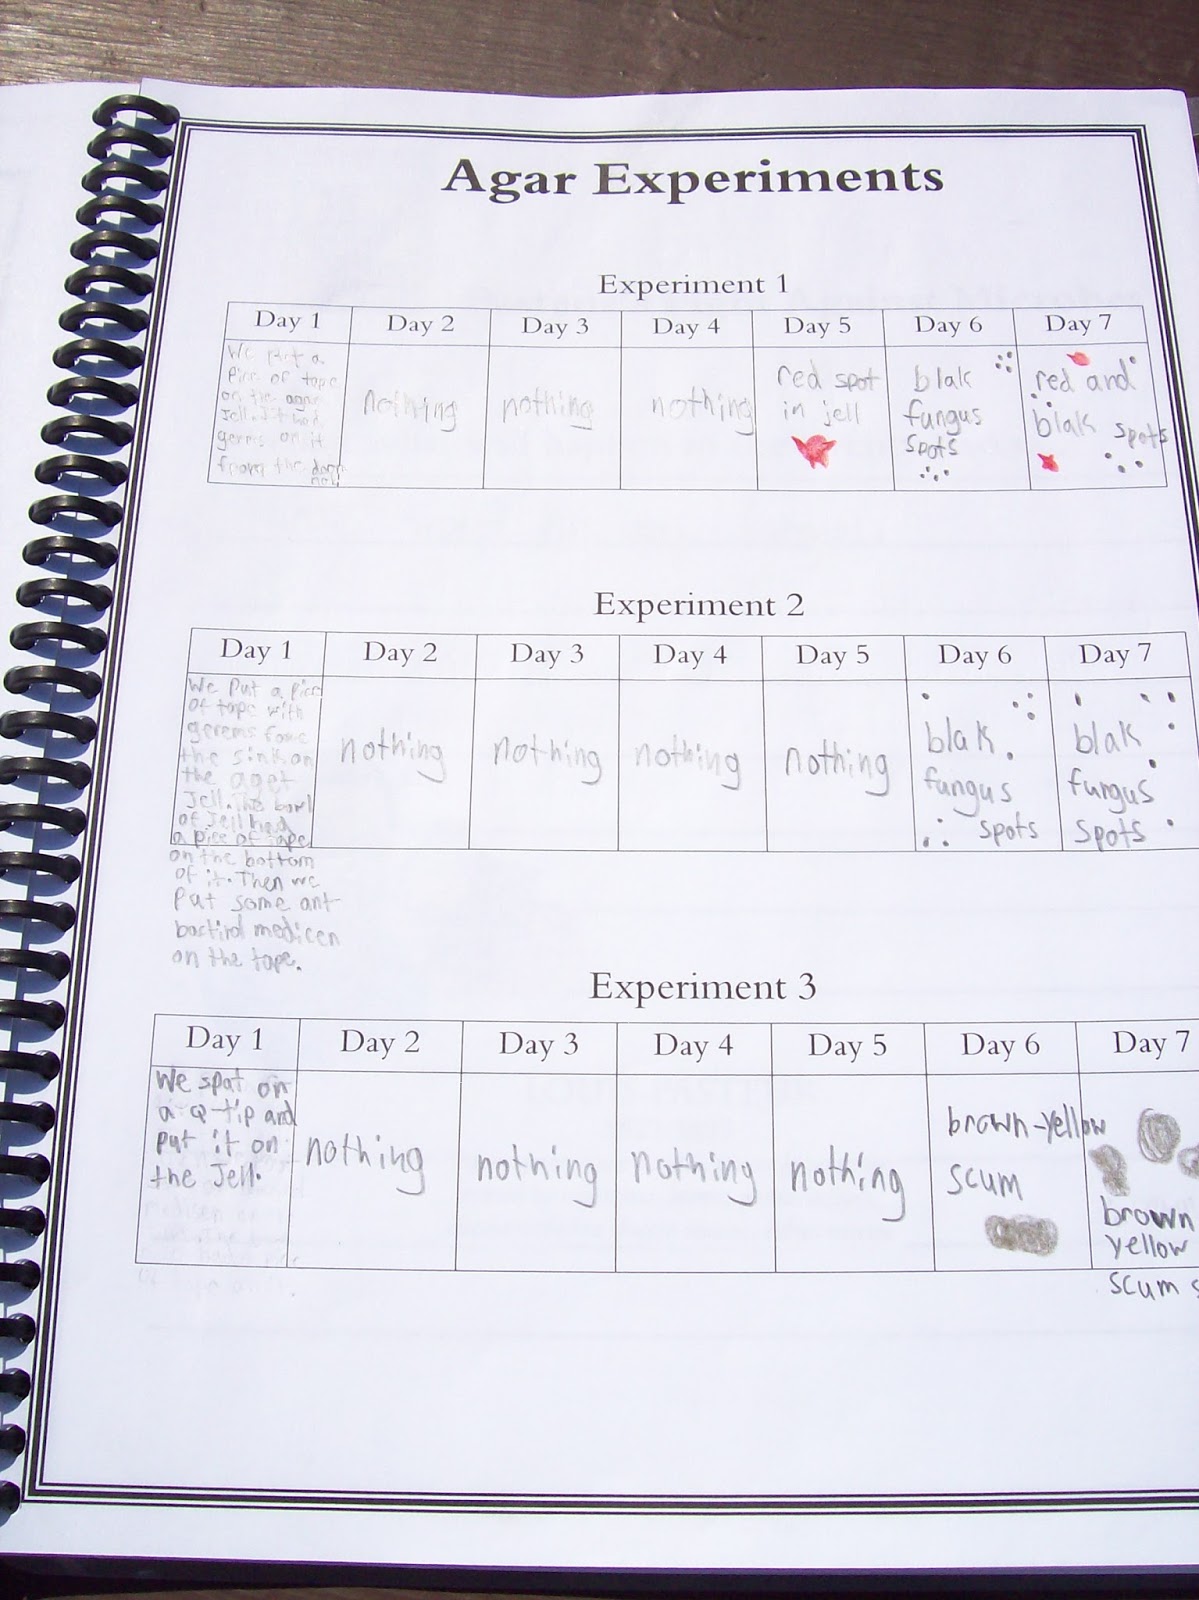 Agar Experiments
Experiment 1
Day 1 Day 2 Day 3 Day 4 Day 5 Day 6 Day 7
We put a
pice of tape
on the agar
Jell. It had
germs on it
from the door
nothing
nothing
nothing
red spot
in jell
blak
fungus
spots
red and
blak spots
Experiment 2
Day 1 Day 2 Day 3 Day 4 Day 5 Day 6 Day 7
We Put a pice
of tape with
gerems
the sink on
the ager
Jell. The bowl
of Jell had
a pice of tape
on the bottom
of it. Then we
Put some ant
bactirol medicen
on the tape.
nothing
nothing
nothing
nothing
blak
fungus
spots
blak
fungus
spots
Experiment 3
Day 1 Day 2 Day 3 Day 4 Day 5 Day 6 Day 7
We spat on
a Q-tip and
put it on
the Jell.
nothing
nothing
nothing
nothing
brown-yellow
scum
brown
yellow
scum s